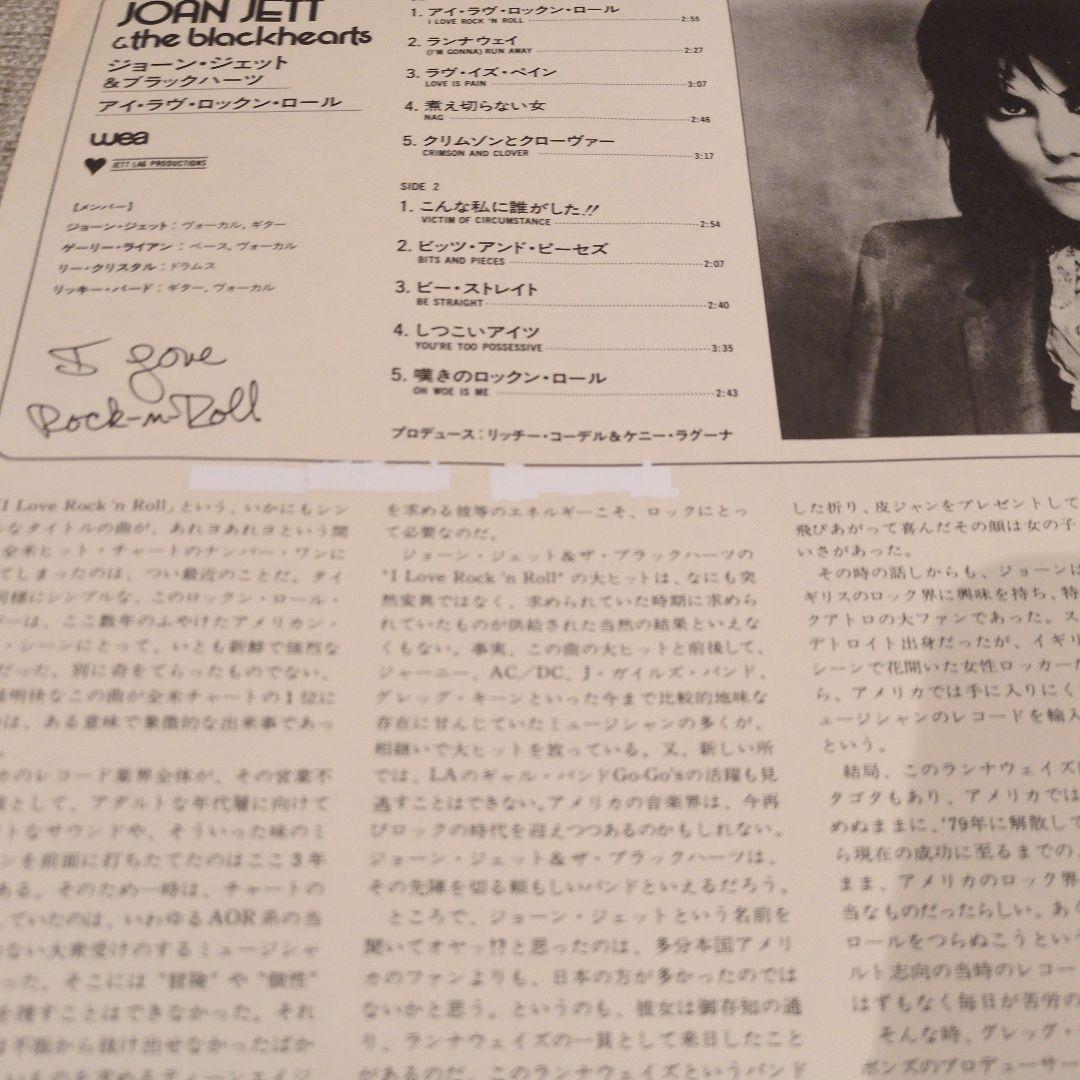 JOAN JETT
& the blackhearts
ジョーン・ジェット
&ブラックハーツ
アイ・ラヴ・ロックン・ロール
wea
JETT LAG PRODUCTIONS
【メンバー】
ジョーン・ジェット：ヴォーカル, ギター
ゲーリー・ライアン：ベース, ヴォーカル
リー・クリスタル：ドラムス
リッキー・バード：ギター, ヴォーカル
I Love
Rock-n-Roll
1. アイ・ラヴ・ロックン・ロール
I LOVE ROCK 'N ROLL 2:55
2. ランナウェイ
(I'M GONNA) RUN AWAY 2:27
3. ラヴ・イズ・ペイン
LOVE IS PAIN 3:07
4. 煮え切らない女
NAG 2:46
5. クリムゾンとクローヴァー
CRIMSON AND CLOVER 3:17
SIDE 2
1. こんな私に誰がした!!
VICTIM OF CIRCUMSTANCE 2:54
2. ビッツ・アンド・ピーセズ
BITS AND PIECES 2:07
3. ビー・ストレイト
BE STRAIGHT 2:40
4. しつこいアイツ
YOU'RE TOO POSSESSIVE 3:35
5. 嘆きのロックン・ロール
OH WOE IS ME 2:43
プロデュース：リッチー・コーデル&ケニー・ラグーナ
「I Love Rock 'n Roll」という、いかにもシン
なタイトルの曲が、あれヨあれヨという間
全米ヒット・チャートのナンバー・ワンに
てしまったのは、つい最近のことだ。タイ
同様にシンプルな、このロックン・ロール・
ーは、ここ数年のふやけたアメリカン・
・シーンにとって、いとも新鮮で強烈な
だった。別に奇をてらったものでない、
明快なこの曲が全米チャートの1位に
は、ある意味で象徴的な出来事であっ
。
カのレコード業界全体が、その営業不
として、アダルトな年代層に向けて
トなサウンドや、そういった味のミ
ンを前面に打ちたてたのはここ3年
ある。そのため一時は、チャートの
していたのは、いわゆるAOR系の当
のない大衆受けのするミュージシャ
った。そこには"冒険"や"個性"
を捜すことはできなかった。それ
不振から抜け出せなかったばか
いものを求めるティーンエイジ
を求める彼等のエネルギーこそ、ロックにとっ
て必要なのだ。
ジョーン・ジェット&ザ・ブラックハーツの
"I Love Rock 'n Roll"の大ヒットは、なにも突
然変異ではなく、求められていた時期に求めら
れていたものが供給された当然の結果といえな
くもない。事実、この曲の大ヒットと前後して、
ジャーニー、AC/DC、J・ガイルズ・バンド、
グレッグ・キーンといった今まで比較的地味な
存在に甘んじていたミュージシャンの多くが、
相継いで大ヒットを放っている。又、新しい所
では、LAのギャル・バンドGo-Go'sの活躍も見
逃すことはできない。アメリカの音楽界は、今再
びロックの時代を迎えつつあるのかもしれない。
ジョーン・ジェット&ザ・ブラックハーツは、
その先陣を切る頼もしいバンドといえるだろう。
ところで、ジョーン・ジェットという名前を
聞いてオヤッ!?と思ったのは、多分本国アメリ
カのファンよりも、日本の方が多かったのでは
ないかと思う。というのも、彼女は御存知の通
り、ランナウェイズの一員として来日したこと
があるのだ。このランナウェイズというバンド
した折り、皮ジャンをプレゼントして
飛びあがって喜んだその顔は女の子
いさがあった。
その時の話しからも、ジョーンは
ギリスのロック界に興味を持ち、特
クアトロの大ファンであった。ス
デトロイト出身だったが、イギリ
シーンで花開いた女性ロッカーだ
ら、アメリカでは手に入りにく
ュージシャンのレコードを輸入
という。
結局、このランナウェイズは
タゴタもあり、アメリカでは
めぬままに、'79年に解散して
ら現在の成功に至るまでの
まま、アメリカのロック界
当なものだったらしい。あく
ロールをつらぬこうという
ルト志向の当時のレコー
はずもなく毎日が苦労の
そんな時、グレッグ・
ポンズのプロデューサー